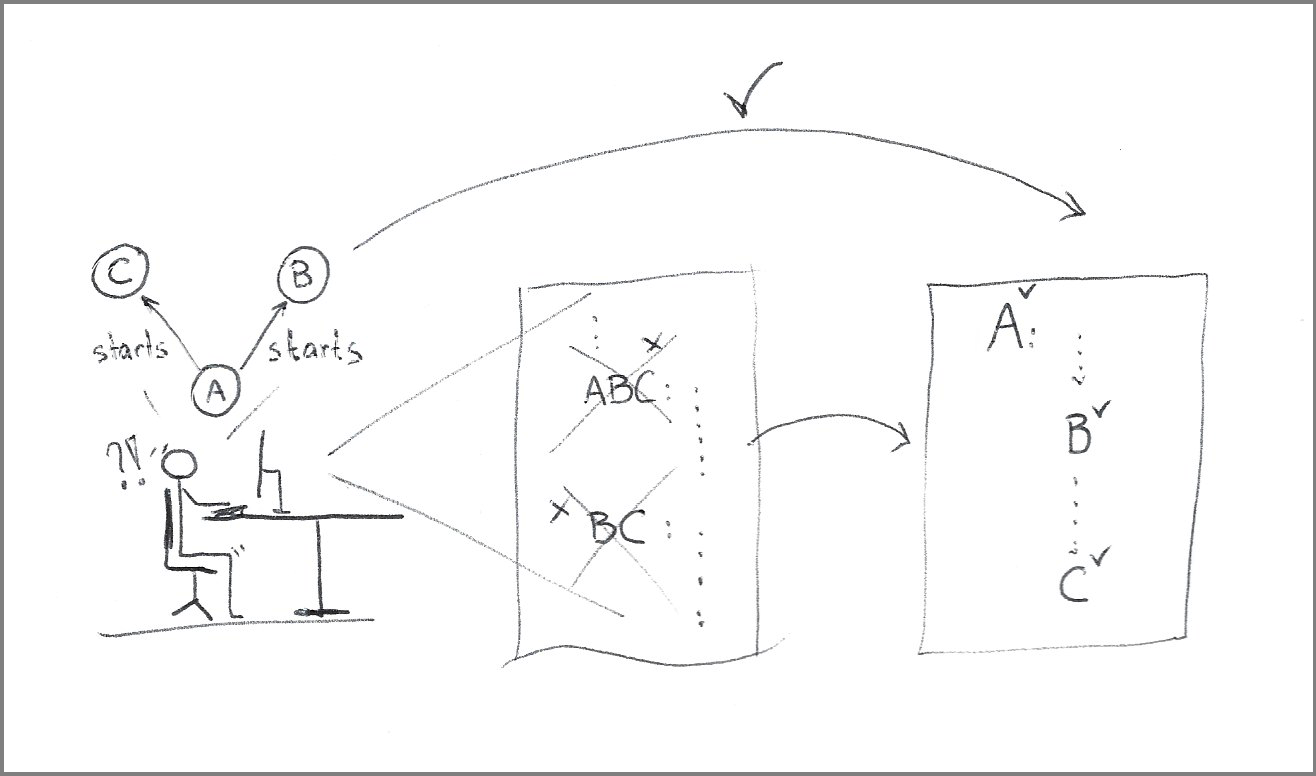 C
B
starts
starts
A
?!
ABC:
BC:
A:
B
C